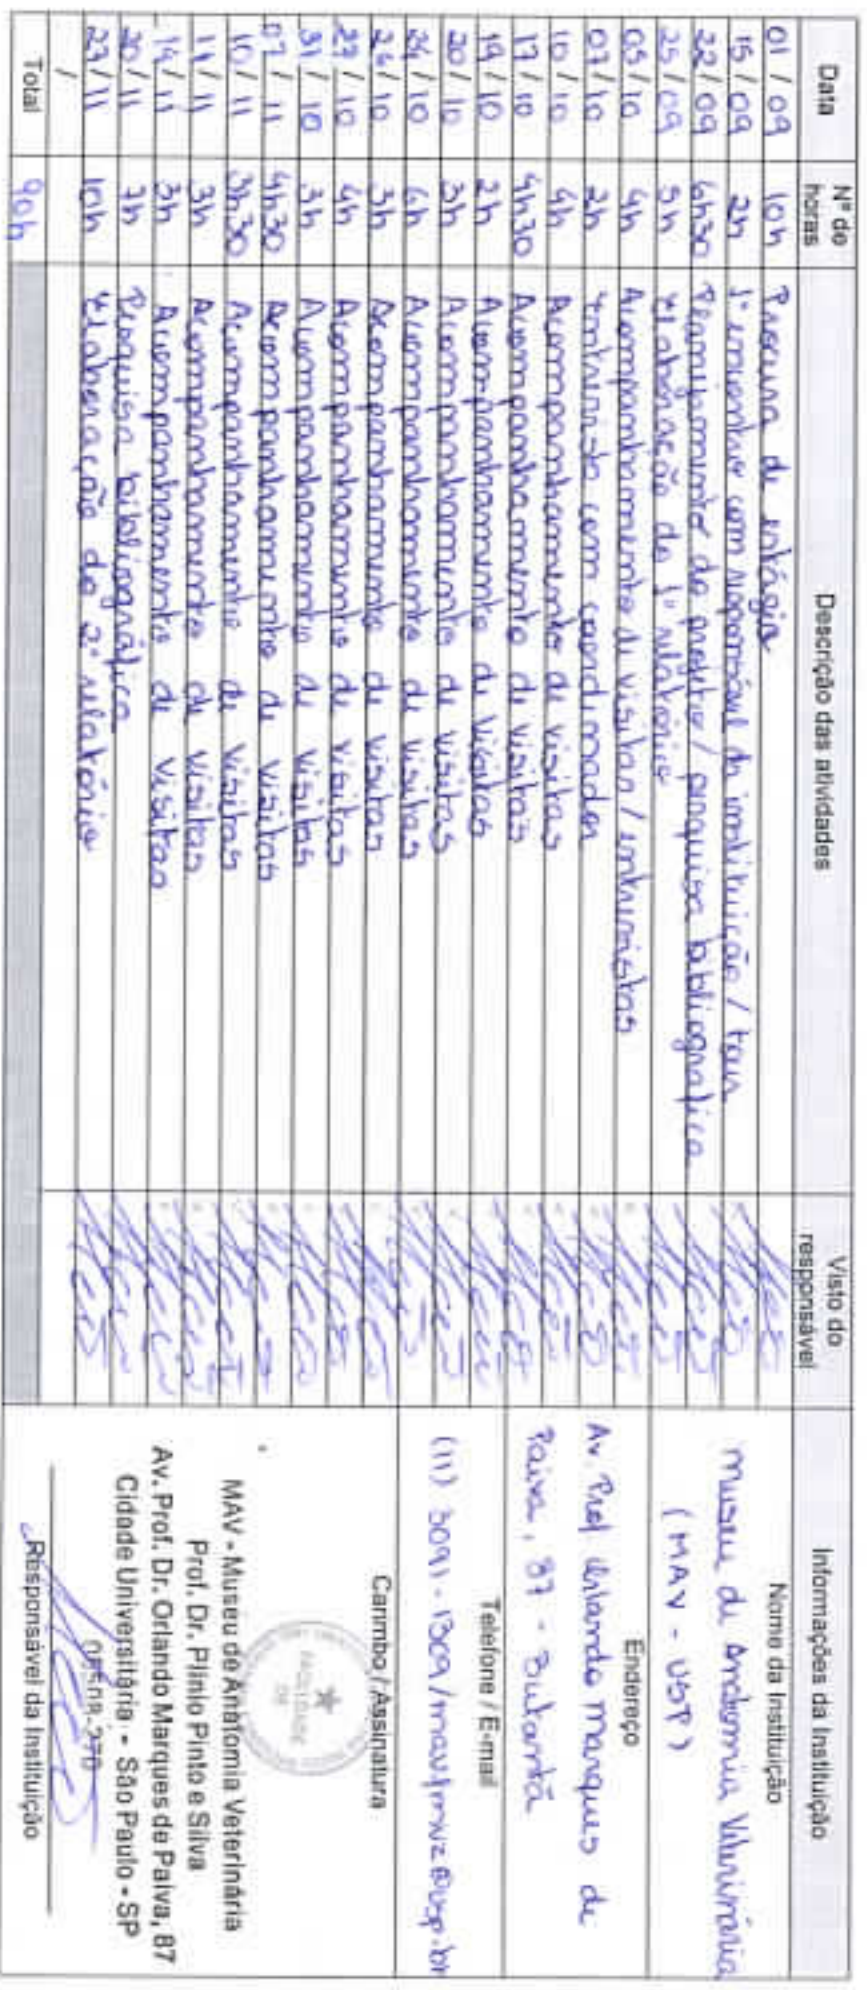 Data Nº de horas Descrição das atividades Visto do responsável Informações da Instituição
01 / 09 10h Procura de estágio
15 / 09 2h 1º encontro com responsável da instituição / tour
22 / 09 6h30 Planejamento do projeto / pesquisa bibliografica
25 / 09 5h Elaboração do 1º relatório
03 / 10 4h Acompanhamento de visitas / entrevistas
07 / 10 2h Entrevista com coordenador
10 / 10 4h Acompanhamento de visitas
17 / 10 4h30 Acompanhamento de visitas
19 / 10 2h Acompanhamento de visitas
20 / 10 3h Acompanhamento de visitas
24 / 10 6h Acompanhamento de visitas
26 / 10 3h Acompanhamento de visitas
27 / 10 6h Acompanhamento de visitas
31 / 10 3h Acompanhamento de visitas
07 / 11 4h30 Acompanhamento de visitas
10 / 11 3h30 Acompanhamento de visitas
11 / 11 3h Acompanhamento de visitas
14 / 11 3h Acompanhamento de visitas
20 / 11 7h Pesquisa bibliográfica
27 / 11 10h Elaboração do 2º relatório
/
Total 90h
Nome da Instituição
Museu de Anatomia Veterinária
(MAV - USP)
Endereço
Av. Prof Orlando Marques de
Paiva, 87 - Butantã
Telefone / E-mail
(11) 3091-1309 / mavfmvz@usp.br
Carimbo / Assinatura
FACULDADE
DE
MAV - Museu de Anatomia Veterinária
Prof. Dr. Plínio Pinto e Silva
Av. Prof. Dr. Orlando Marques de Paiva, 87
Cidade Universitária - São Paulo - SP
05508-270
Responsável da Instituição